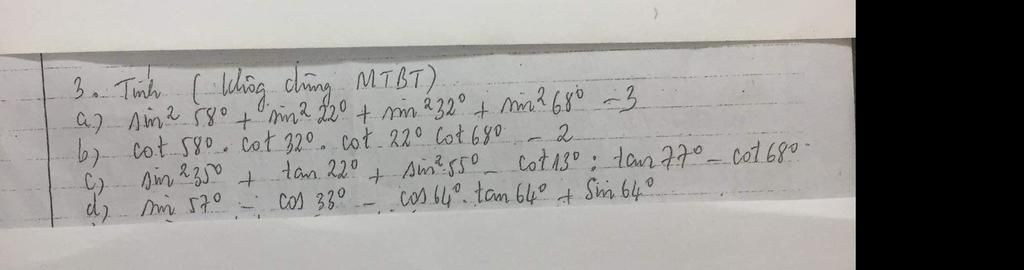 3. Tính (không dùng MTBT)
a) sin² 58° + sin² 22° + sin² 32° + sin² 68° - 3
b) cot 58° . cot 32° . cot 22° cot 68° - 2
c) sin² 35° + tan 22° + sin² 55° - cot 13° : tan 77° - cot 68°
d) sin 57° - cos 33° - cos 64° . tan 64° + sin 64°